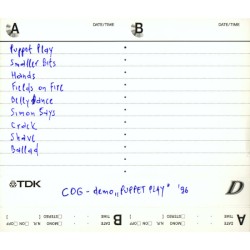 A DATE/TIME
B DATE/TIME
Puppet Play
Smaller Bits
Hands
Fields on Fire
Belly dance
Simon Says
Crack
Shave
Ballad
TDK
CDG - demo „PUPPET PLAY" '96
D
A DATE/TIME
B DATE/TIME